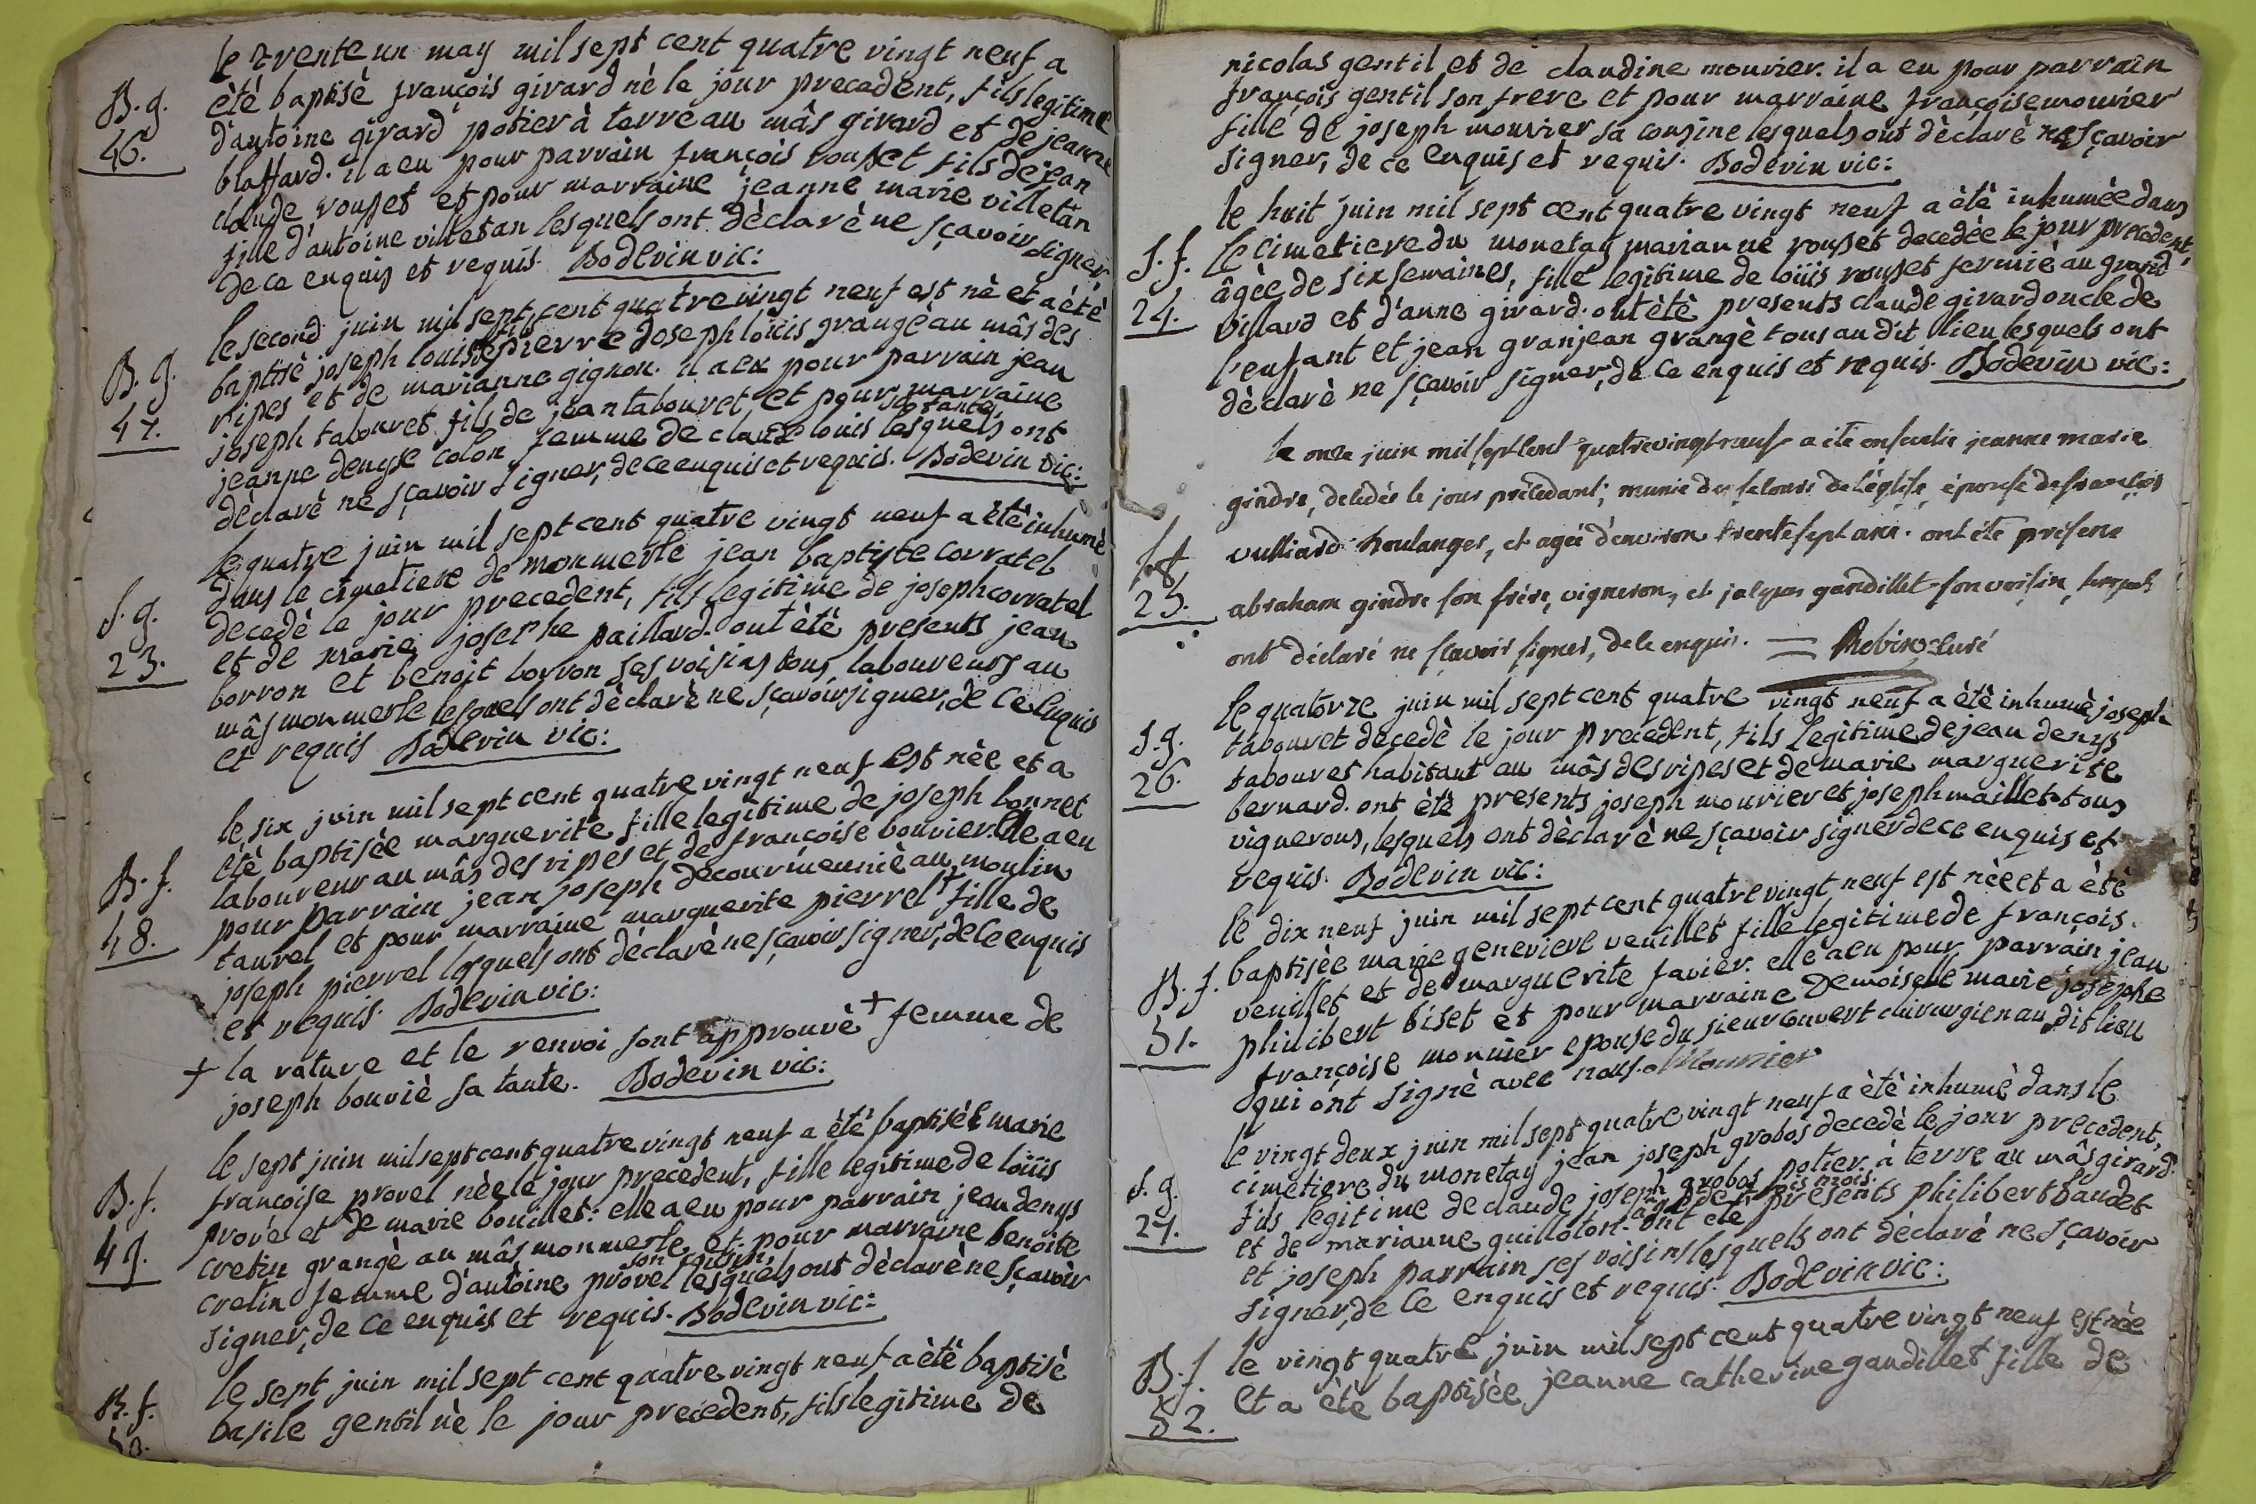 le trente un may mil sept cent quatre vingt neuf a
B. g. étè baptisè françois girard nè le jour precedent, fils legitime
46. d'antoine girard potier à terre au mâs girard et de jeanne
blaffard. il a eu pour parrain françois rousset fils de jean
claude rousset et pour marraine jeanne marie villetan
fille d'antoine villetan lesquels ont dèclarè ne sçavoir signer,
de ce enquis et requis. Bodevin vic:
le second juin mil sept cent quatre vingt neuf est nè et a étè
B. g. baptisè joseph louis fils de pierre joseph loüis grangè au mâs des
47. ripes et de marianne gignon. il a eu pour parrain jean
joseph tabouret fils de jean tabouret et pour marraine
jeanne denyse colon femme de claude louis sa tante, lesquels ont
dèclarè ne sçavoir signer, de ce enquis et requis. Bodevin vic:
le quatre juin mil sept cent quatre vingt neuf a étè inhumè
dans le cimetiere de monmerle jean baptiste corratel
S. g. decedè le jour precedent, fils legitime de joseph corratel
23. et de marie josephe paillard. ont étè presents jean
borron et benoit borron ses voisins tous laboureurs au
mâs monmerle lesquels ont dèclarè ne sçavoir signer, de ce enquis
et requis Bodevin vic:
le six juin mil sept cent quatre vingt neuf est nèe et a
étè baptisèe marguerite fille legitime de joseph bonnet
B. f. laboureur au mâs des ripes et de françoise bouvier. elle a eu
48. pour parrain jean joseph decour meuniè au moulin
taurel et pour marraine marguerite pierrel + fille de
joseph pierrel lesquels ont dèclarè ne sçavoir signer, de ce enquis
et requis. Bodevin vic:
+ la rature et le renvoi sont approuvè + femme de
joseph bouviè sa tante. Bodevin vic:
le sept juin mil sept cent quatre vingt neuf a étè baptisèe marie
B. f. françoise provel nèe le jour precedent, fille legitime de loüis
49. provel et de marie bouillet: elle a eu pour parrain jean denys
cretin grangè au mâs monmerle et pour marraine benoite
cretin femme d'antoine provel son cousin, lesquels ont dèclarè ne sçavoir
signer, de ce enquis et requis. Bodevin vic:
B. f. le sept juin mil sept cent quatre vingt neuf a étè baptisè
50. basile gentil nè le jour precedent, fils legitime de
nicolas gentil et de claudine mourier. il a eu pour parrain
françois gentil son frere et pour marraine françoise mourier
fille de joseph mourier sa cousine lesquels ont dèclarè ne sçavoir
signer, de ce enquis et requis. Bodevin vic:
le huit juin mil sept cent quatre vingt neuf a étè inhumèe dans
S. f. le cimetiere du monetay marianne rousset decedèe le jour precedent,
24. âgèe de six semaines, fille legitime de loüis rousset fermiè au grand
villard et d'anne girard. ont étè presents claude girard oncle de
l'enfant et jean granjean grangè tous au dit lieu lesquels ont
dèclarè ne sçavoir signer, de ce enquis et requis. Bodevin vic:
le onze juin mil sept cent quatre vingt neuf a été ensevelie jeanne marie
gindre, decédée le jour précédent, munie des secours de l'église, épouse de françois
S. f. vulliard boulanger, et agée d'environ trente sept ans. ont été présens
25. abraham gindre son frère, vigneron, et jacques gandillet son voisin, lesquels
ont déclaré ne sçavoir signer, de ce enquis. = Robin curé
le quatorze juin mil sept cent quatre vingt neuf a étè inhumè joseph
S. g. tabouret decedè le jour precedent, fils legitime de jean denys
26. tabouret habitant au mâs des ripes et de marie marguerite
bernard. ont étè presents joseph mourier et joseph maillet tous
vignerons, lesquels ont dèclarè ne sçavoir signer de ce enquis et
requis. Bodevin vic:
le dix neuf juin mil sept cent quatre vingt neuf est nèe et a étè
B. f. baptisèe marie genevieve veuillet fille legitime de françois
51. veuillet et de marguerite favier. elle a eu pour parrain jean
philibert biset et pour marraine Demoiselle marie josephe
françoise monnier epouse du sieur couvert chirurgien au dit lieu
qui ont signè avec nous. Mounier
le vingt deux juin mil sept quatre vingt neuf a étè inhumè dans le
S. g. cimetiere du monetay jean joseph grobos decedè le jour precedent,
27. fils legitime de claude joseph grobos potier à terre au mâs girard
et de marianne guilloton. âgè de trois mois. ont étè presents philibert baudet
et joseph parrain ses voisins lesquels ont dèclarè ne sçavoir
signer, de ce enquis et requis. Bodevin vic:
B. f. le vingt quatre juin mil sept cent quatre vingt neuf est nèe
52. et a étè baptisèe jeanne catherine gandillet fille de